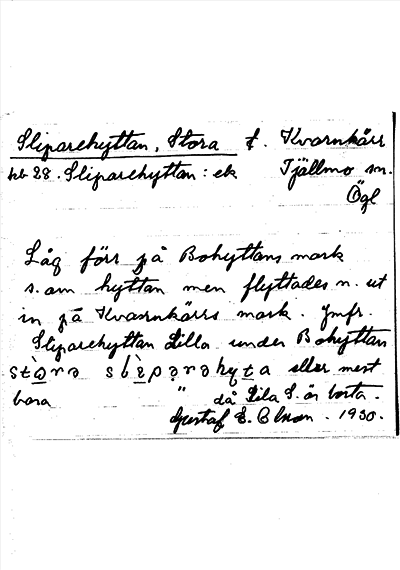 Sliparehyttan, Stora t. Kvarnkärr
hb 28. Sliparehyttan: ek Tjällmo sn.
Ögl
Låg förr på Bohyttans mark
s. om hyttan men flyttades n. ut
in på Kvarnkärrs mark. Jmfr.
Sliparehyttan Lilla under Bohyttan
eller mest
bara " då Lila S. är borta.
Gustaf E. Olson. 1930.